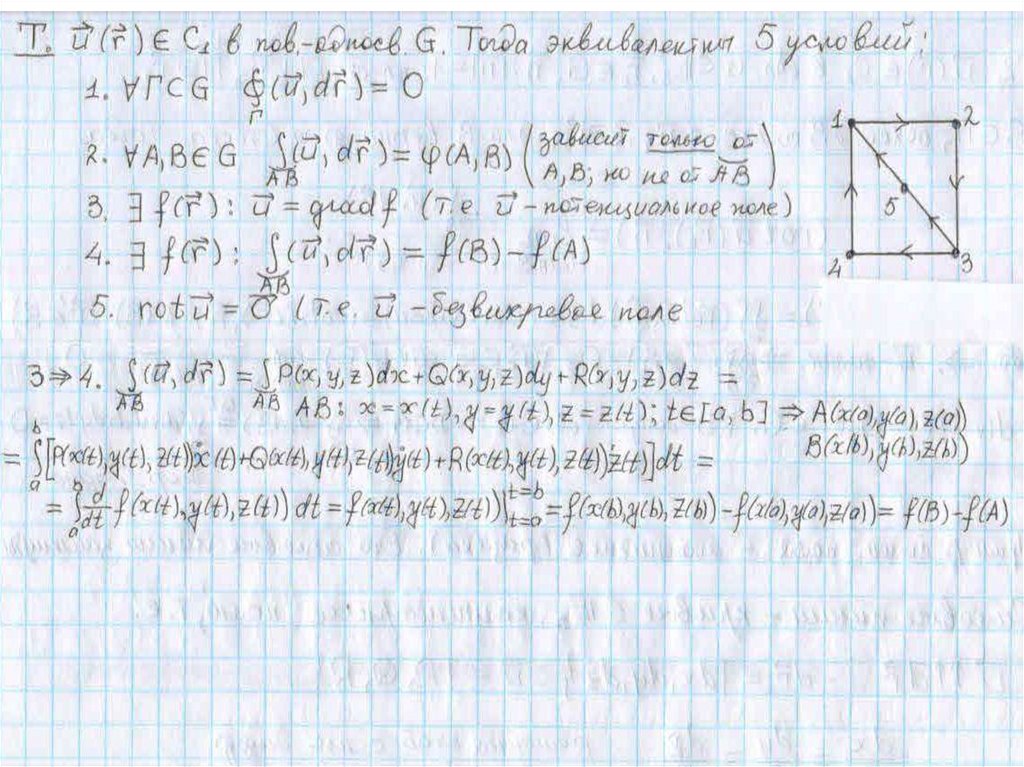 Т. u⃗(r⃗) ∈ C₁ в пов.-односв. G. Тогда эквивалентны 5 условий:
1. ∀Γ⊂G ∮_Γ (u⃗, dr⃗) = 0
2. ∀A,B∈G ∫_AB (u⃗, dr⃗) = φ(A,B) (зависит только от A,B; но не от AB)
3. ∃ f(r⃗): u⃗ = grad f (т.е. u⃗ – потенциальное поле)
4. ∃ f(r⃗): ∫_AB (u⃗, dr⃗) = f(B) – f(A)
5. rot u⃗ = 0⃗ (т.е. u⃗ – безвихревое поле
1 2
5
4 3
3⇒4. ∫_AB (u⃗, dr⃗) = ∫_AB P(x,y,z)dx+Q(x,y,z)dy+R(x,y,z)dz =
AB: x=x(t), y=y(t), z=z(t); t∈[a,b] ⇒ A(x(a),y(a),z(a))
B(x(b),y(b),z(b))
= ∫_a^b [P(x(t),y(t),z(t))ẋ(t)+Q(x(t),y(t),z(t))ẏ(t)+R(x(t),y(t),z(t))ż(t)]dt =
= ∫_a^b d/dt f(x(t),y(t),z(t)) dt = f(x(t),y(t),z(t))|_{t=a}^{t=b} = f(x(b),y(b),z(b)) – f(x(a),y(a),z(a)) = f(B) – f(A)